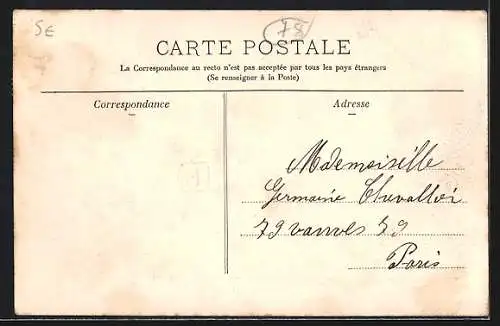 5E
78
CARTE POSTALE
La Correspondance au recto n'est pas acceptée par tous les pays étrangers
(Se renseigner à la Poste)
Correspondance
Adresse
Mademoiselle
Germaine Chevallier
79 vanves 59
Paris